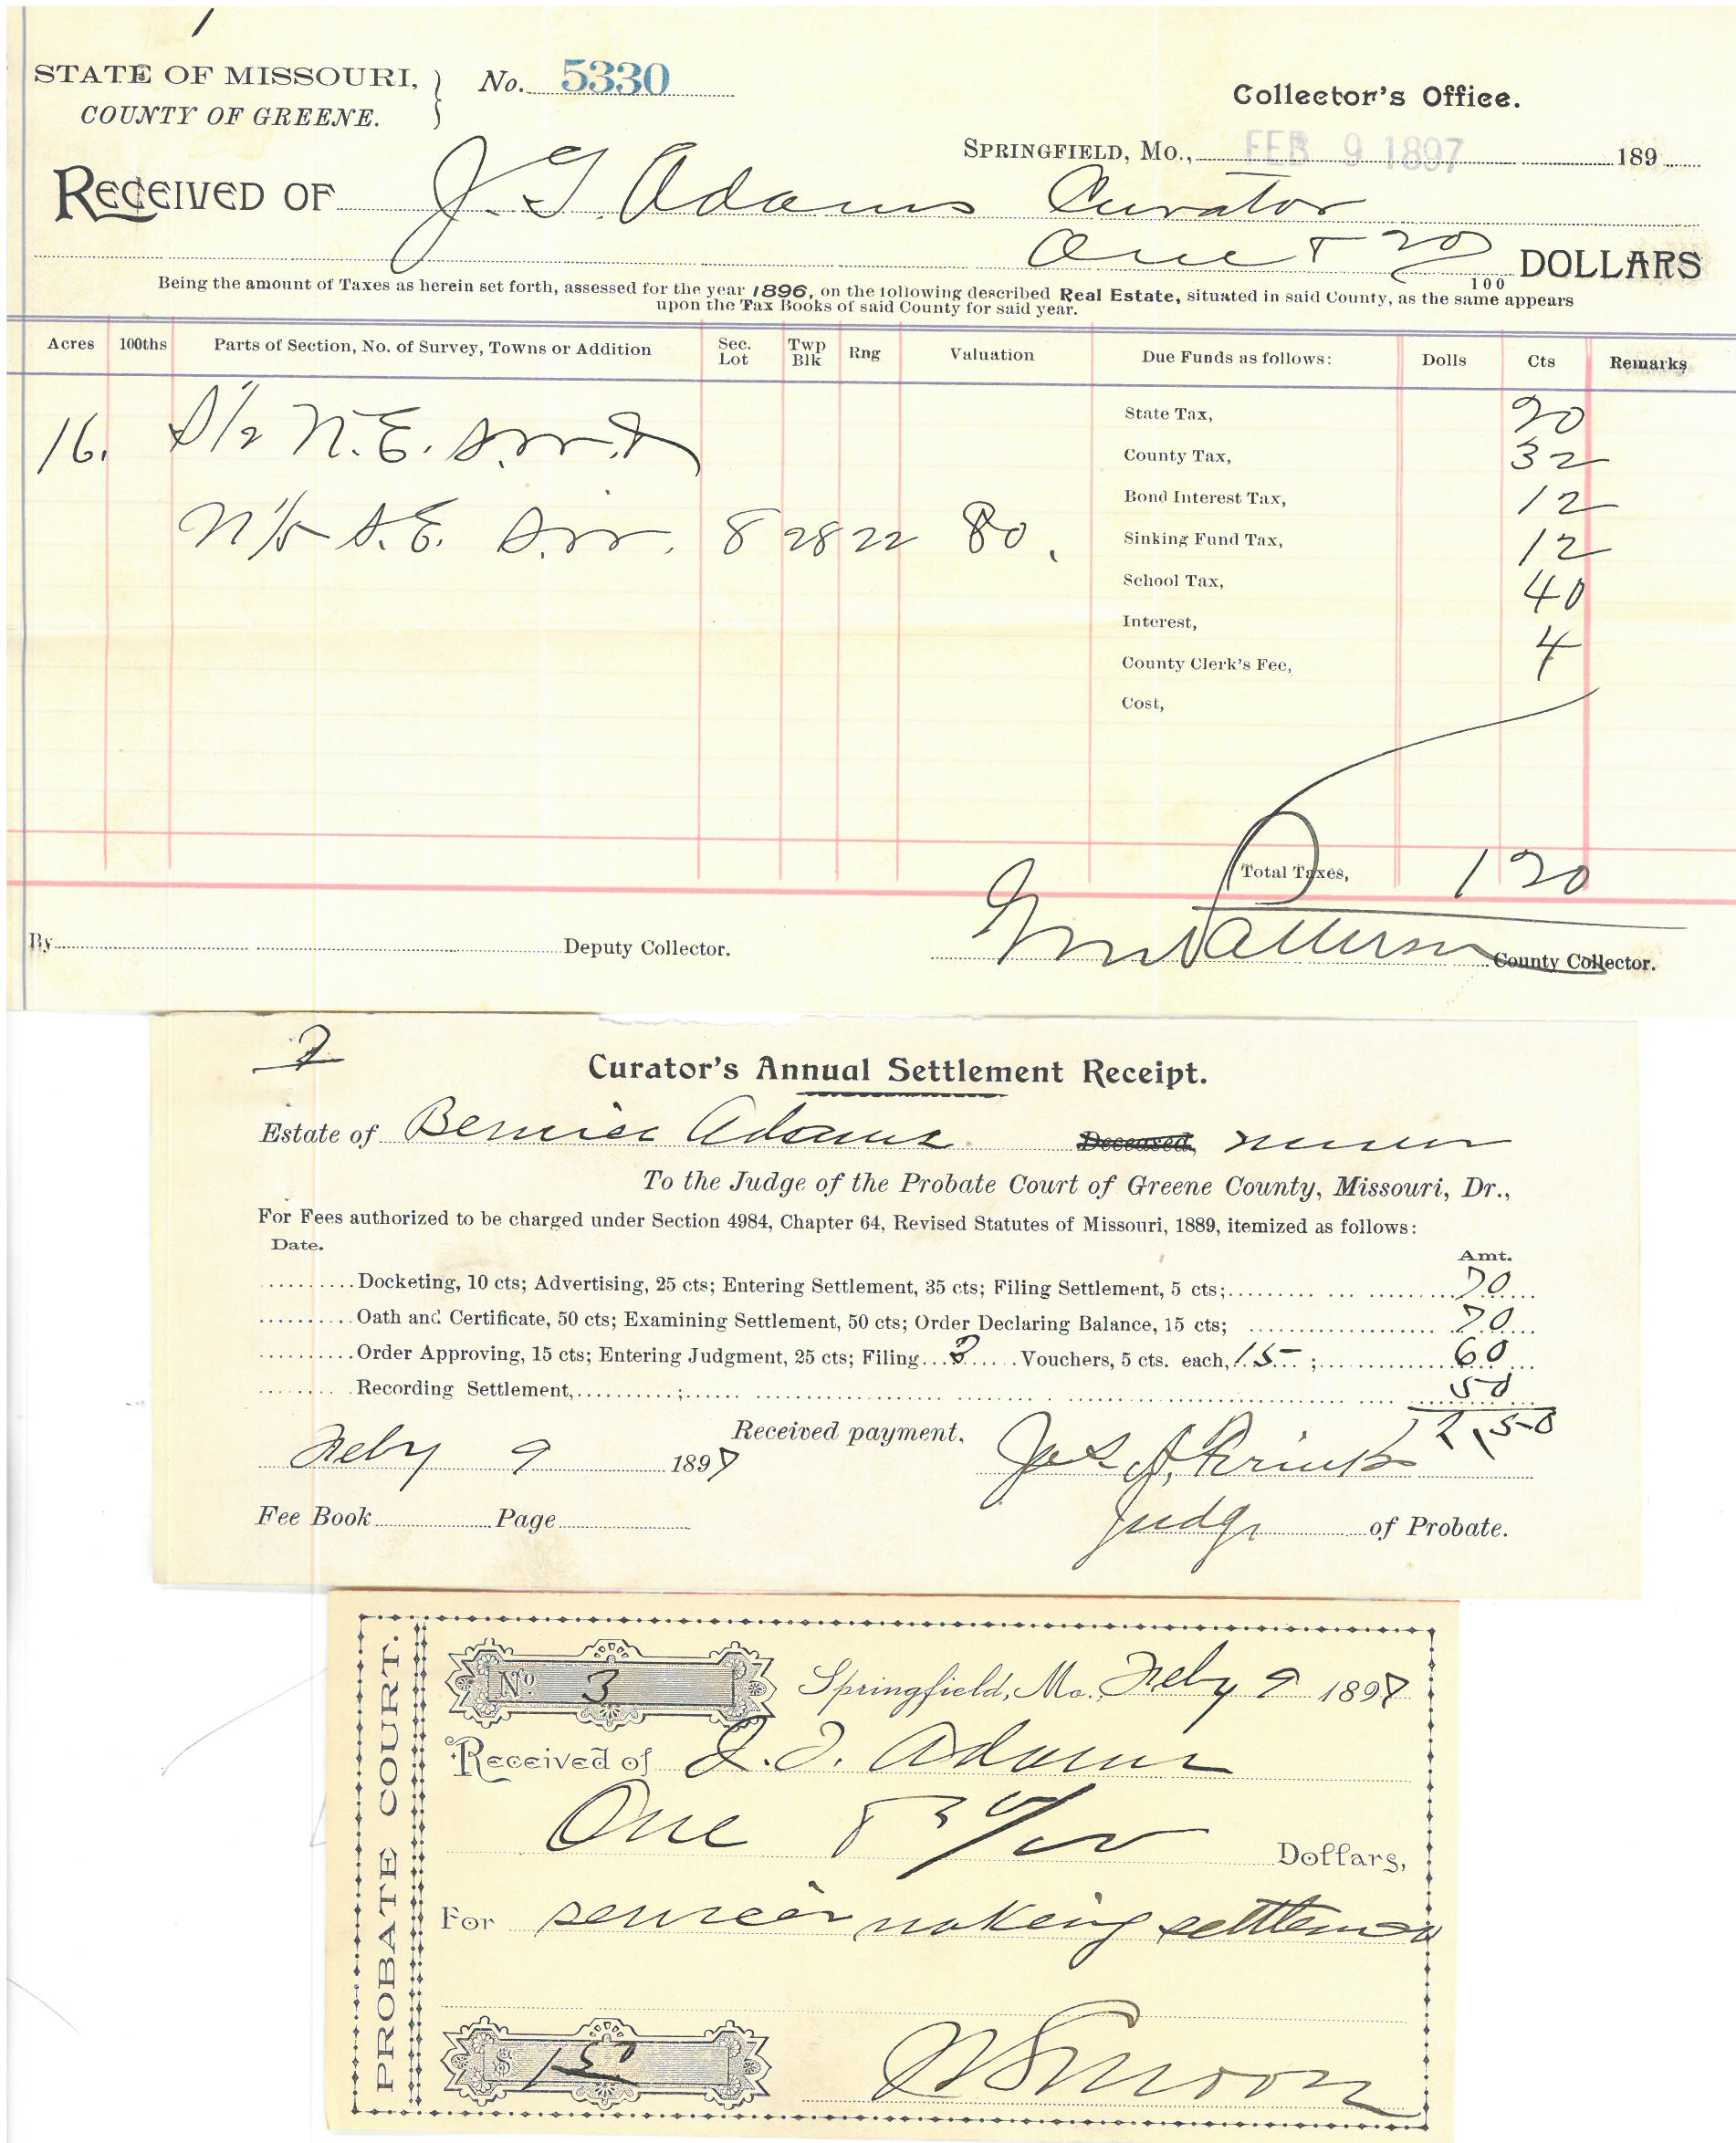 1
STATE OF MISSOURI, No. 5330
COUNTY OF GREENE.
Collector's Office.
SPRINGFIELD, Mo., FEB 9 1897 189
RECEIVED OF J. T. Adams Curator
One & 20/100 DOLLARS
Being the amount of Taxes as herein set forth, assessed for the year 1896, on the following described Real Estate, situated in said County, as the same appears
upon the Tax Books of said County for said year.
Acres 100ths Parts of Section, No. of Survey, Towns or Addition Sec. Lot Twp Blk Rng Valuation Due Funds as follows: Dolls Cts Remarks
16. S 1/2 N.E. S.W. &
N 1/5 S.E. S.W. 8 28 22 80.
State Tax, 20
County Tax, 32
Bond Interest Tax, 12
Sinking Fund Tax, 12
School Tax, 40
Interest,
County Clerk's Fee, 4
Cost,
Total Taxes, 1 20
By Deputy Collector. Patterson County Collector.
2
Curator's Annual Settlement Receipt.
Estate of Bernice Adams Deceased, minor
To the Judge of the Probate Court of Greene County, Missouri, Dr.,
For Fees authorized to be charged under Section 4984, Chapter 64, Revised Statutes of Missouri, 1889, itemized as follows:
Date. Amt.
Docketing, 10 cts; Advertising, 25 cts; Entering Settlement, 35 cts; Filing Settlement, 5 cts; 70
Oath and Certificate, 50 cts; Examining Settlement, 50 cts; Order Declaring Balance, 15 cts; 70
Order Approving, 15 cts; Entering Judgment, 25 cts; Filing 3 Vouchers, 5 cts. each, 15 ; 60
Recording Settlement, ; 50
2,50
Received payment,
Feby 9 1897
Fee Book Page Judge of Probate.
PROBATE COURT.
No 3 Springfield, Mo. Feby 9 1897
Received of J. T. Adams
One & 50/100 Dollars,
For services making settlement
$ 1 50 Moon